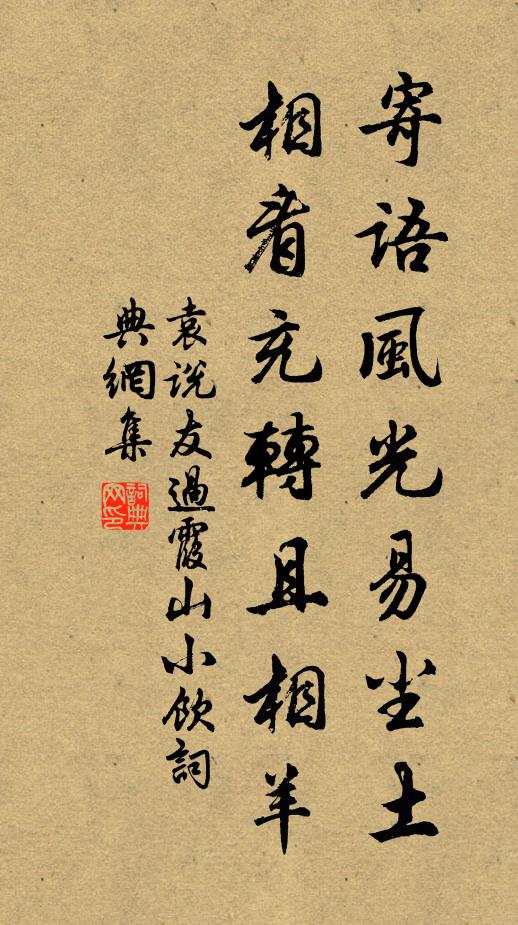 寄語風光易尘土
相看充轉且相羊
袁説友過霞山小飲詞
典網集
詞典网印